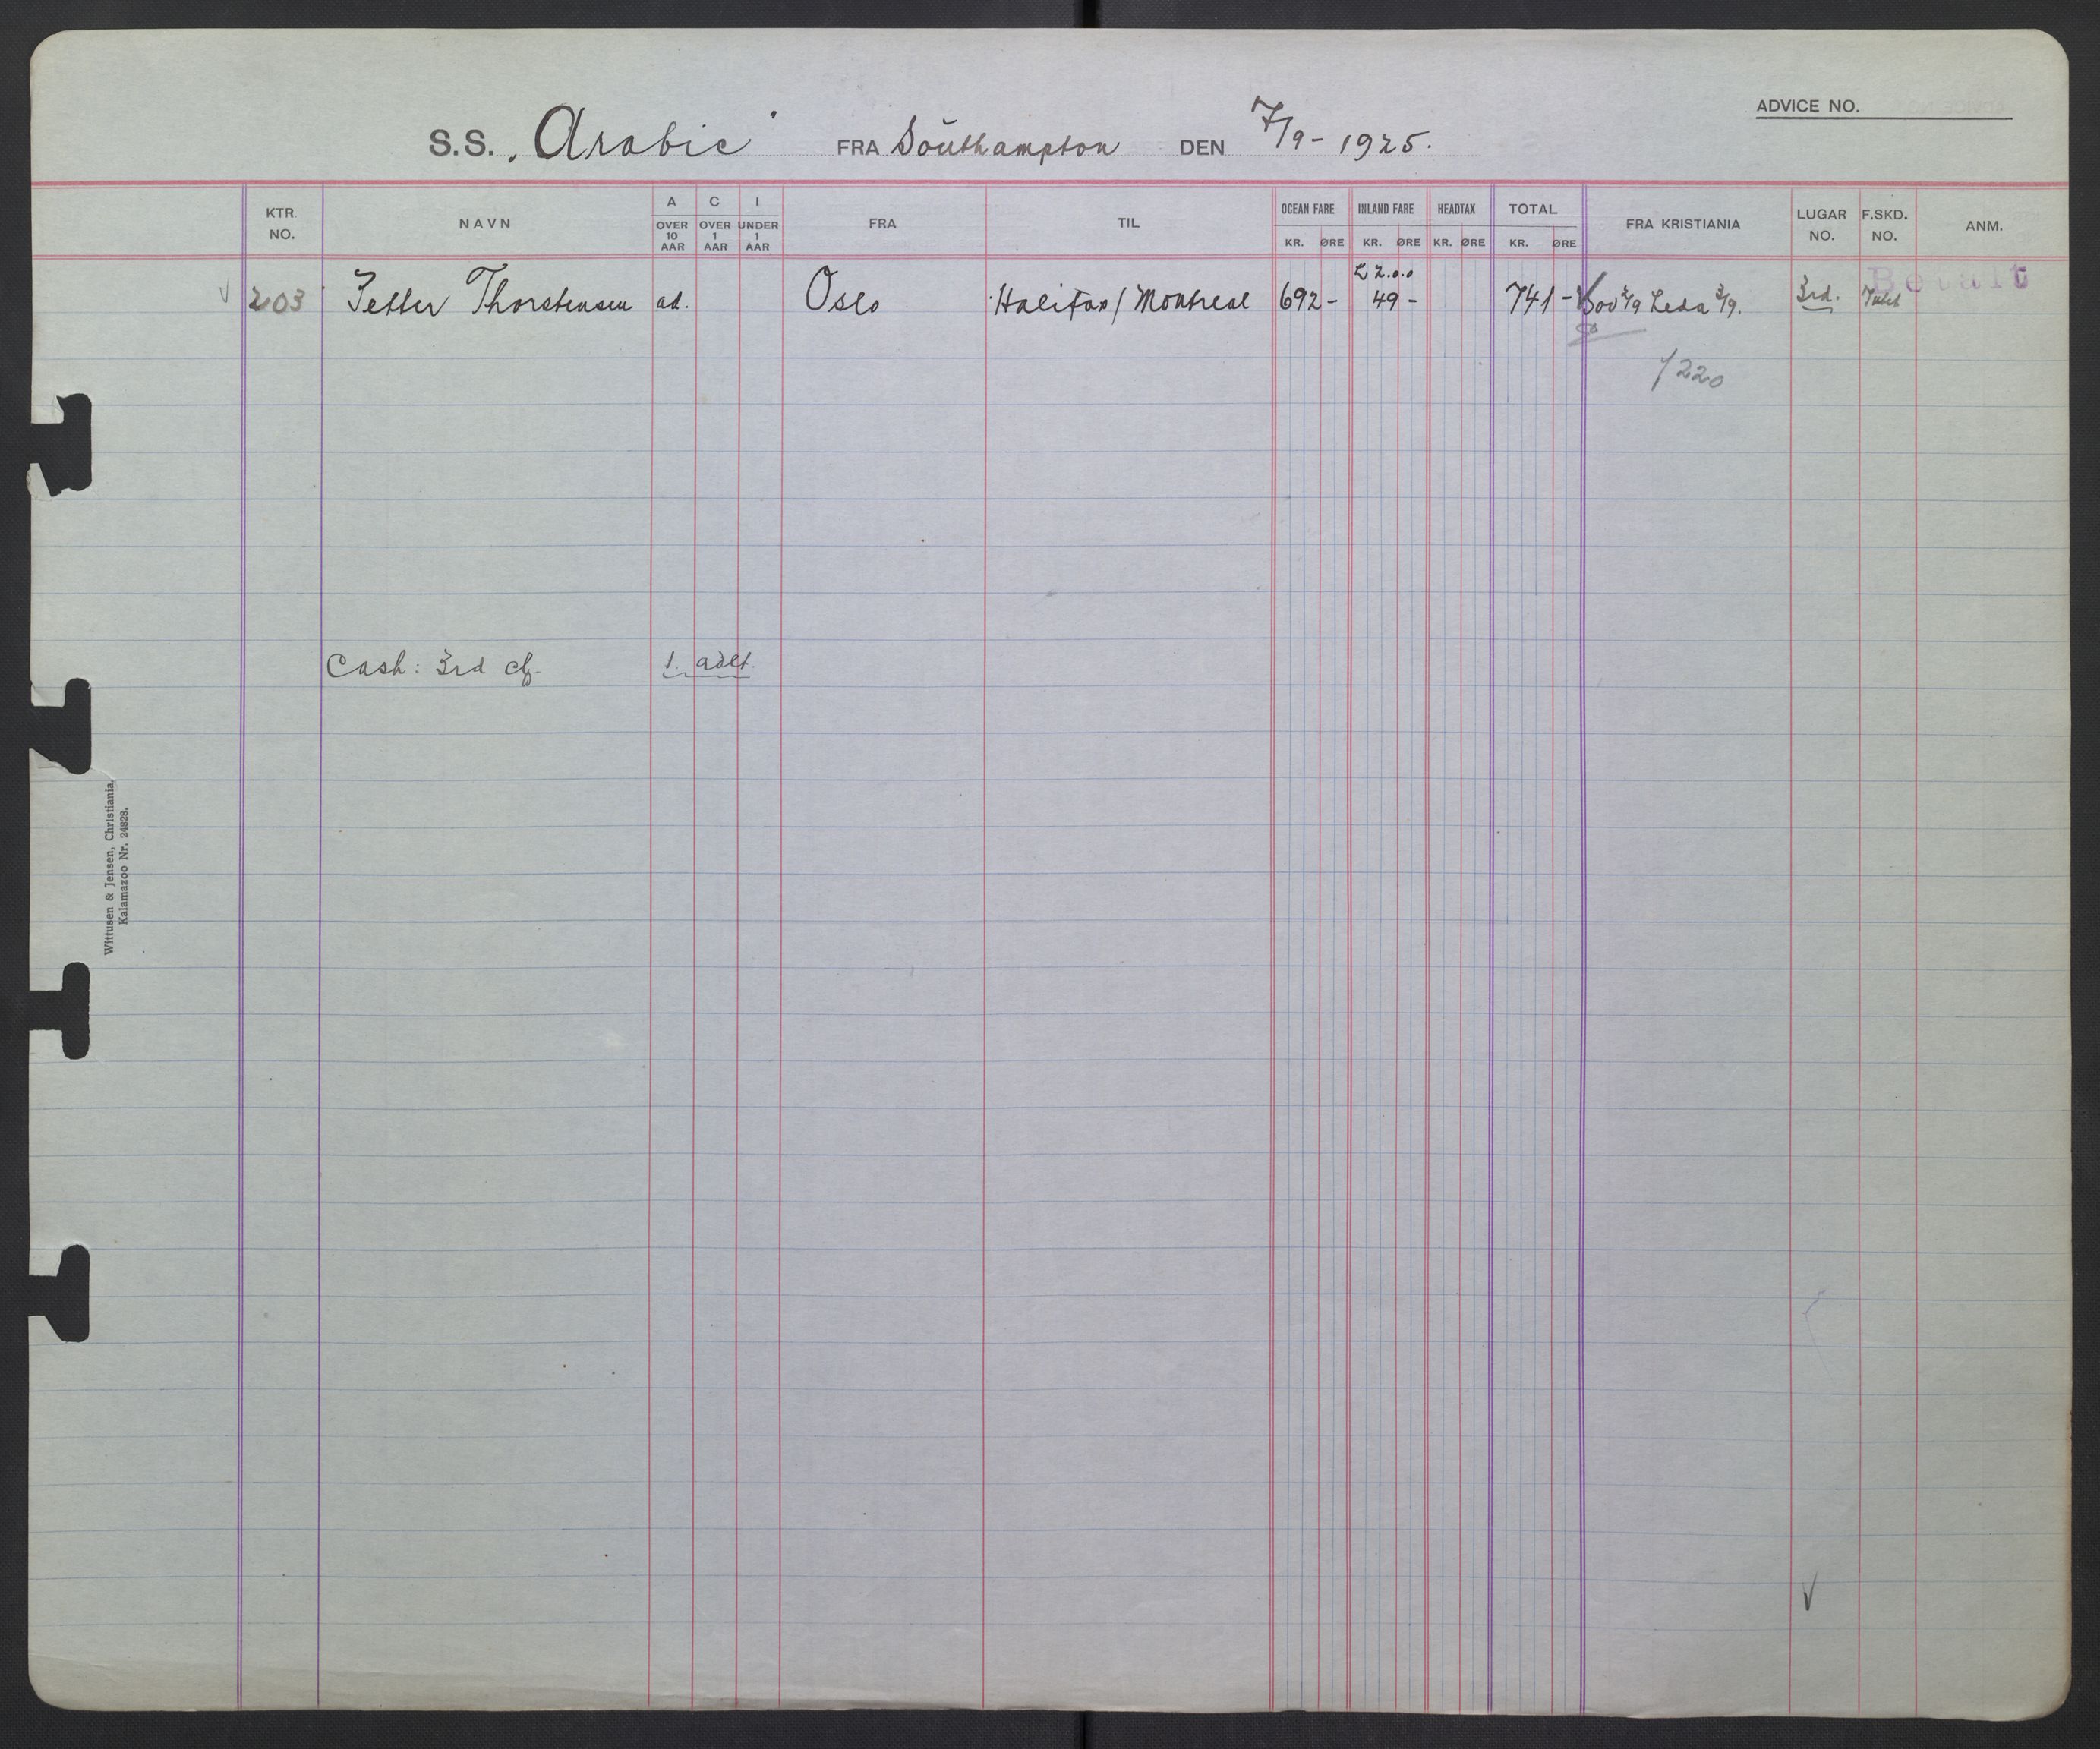 ADVICE NO.
S.S. "Arabic" FRA Southampton DEN 7/9-1925.
KTR. NO. NAVN A OVER 10 AAR C OVER 1 AAR I UNDER 1 AAR FRA TIL OCEAN FARE KR. ØRE INLAND FARE KR. ØRE HEADTAX KR. ØRE TOTAL KR. ØRE FRA KRISTIANIA LUGAR NO. F.SKD. NO. ANM.
£ 2.0.0 Betalt
203 Petter Thorstensen ad. Oslo Halifax/Montreal 692- 49- 741- Leda 3/9. 3rd.
/220
Cash: 3rd cl. 1. adlt.
Wittusen & Jensen, Christiania.
Kalamazoo Nr. 24828.